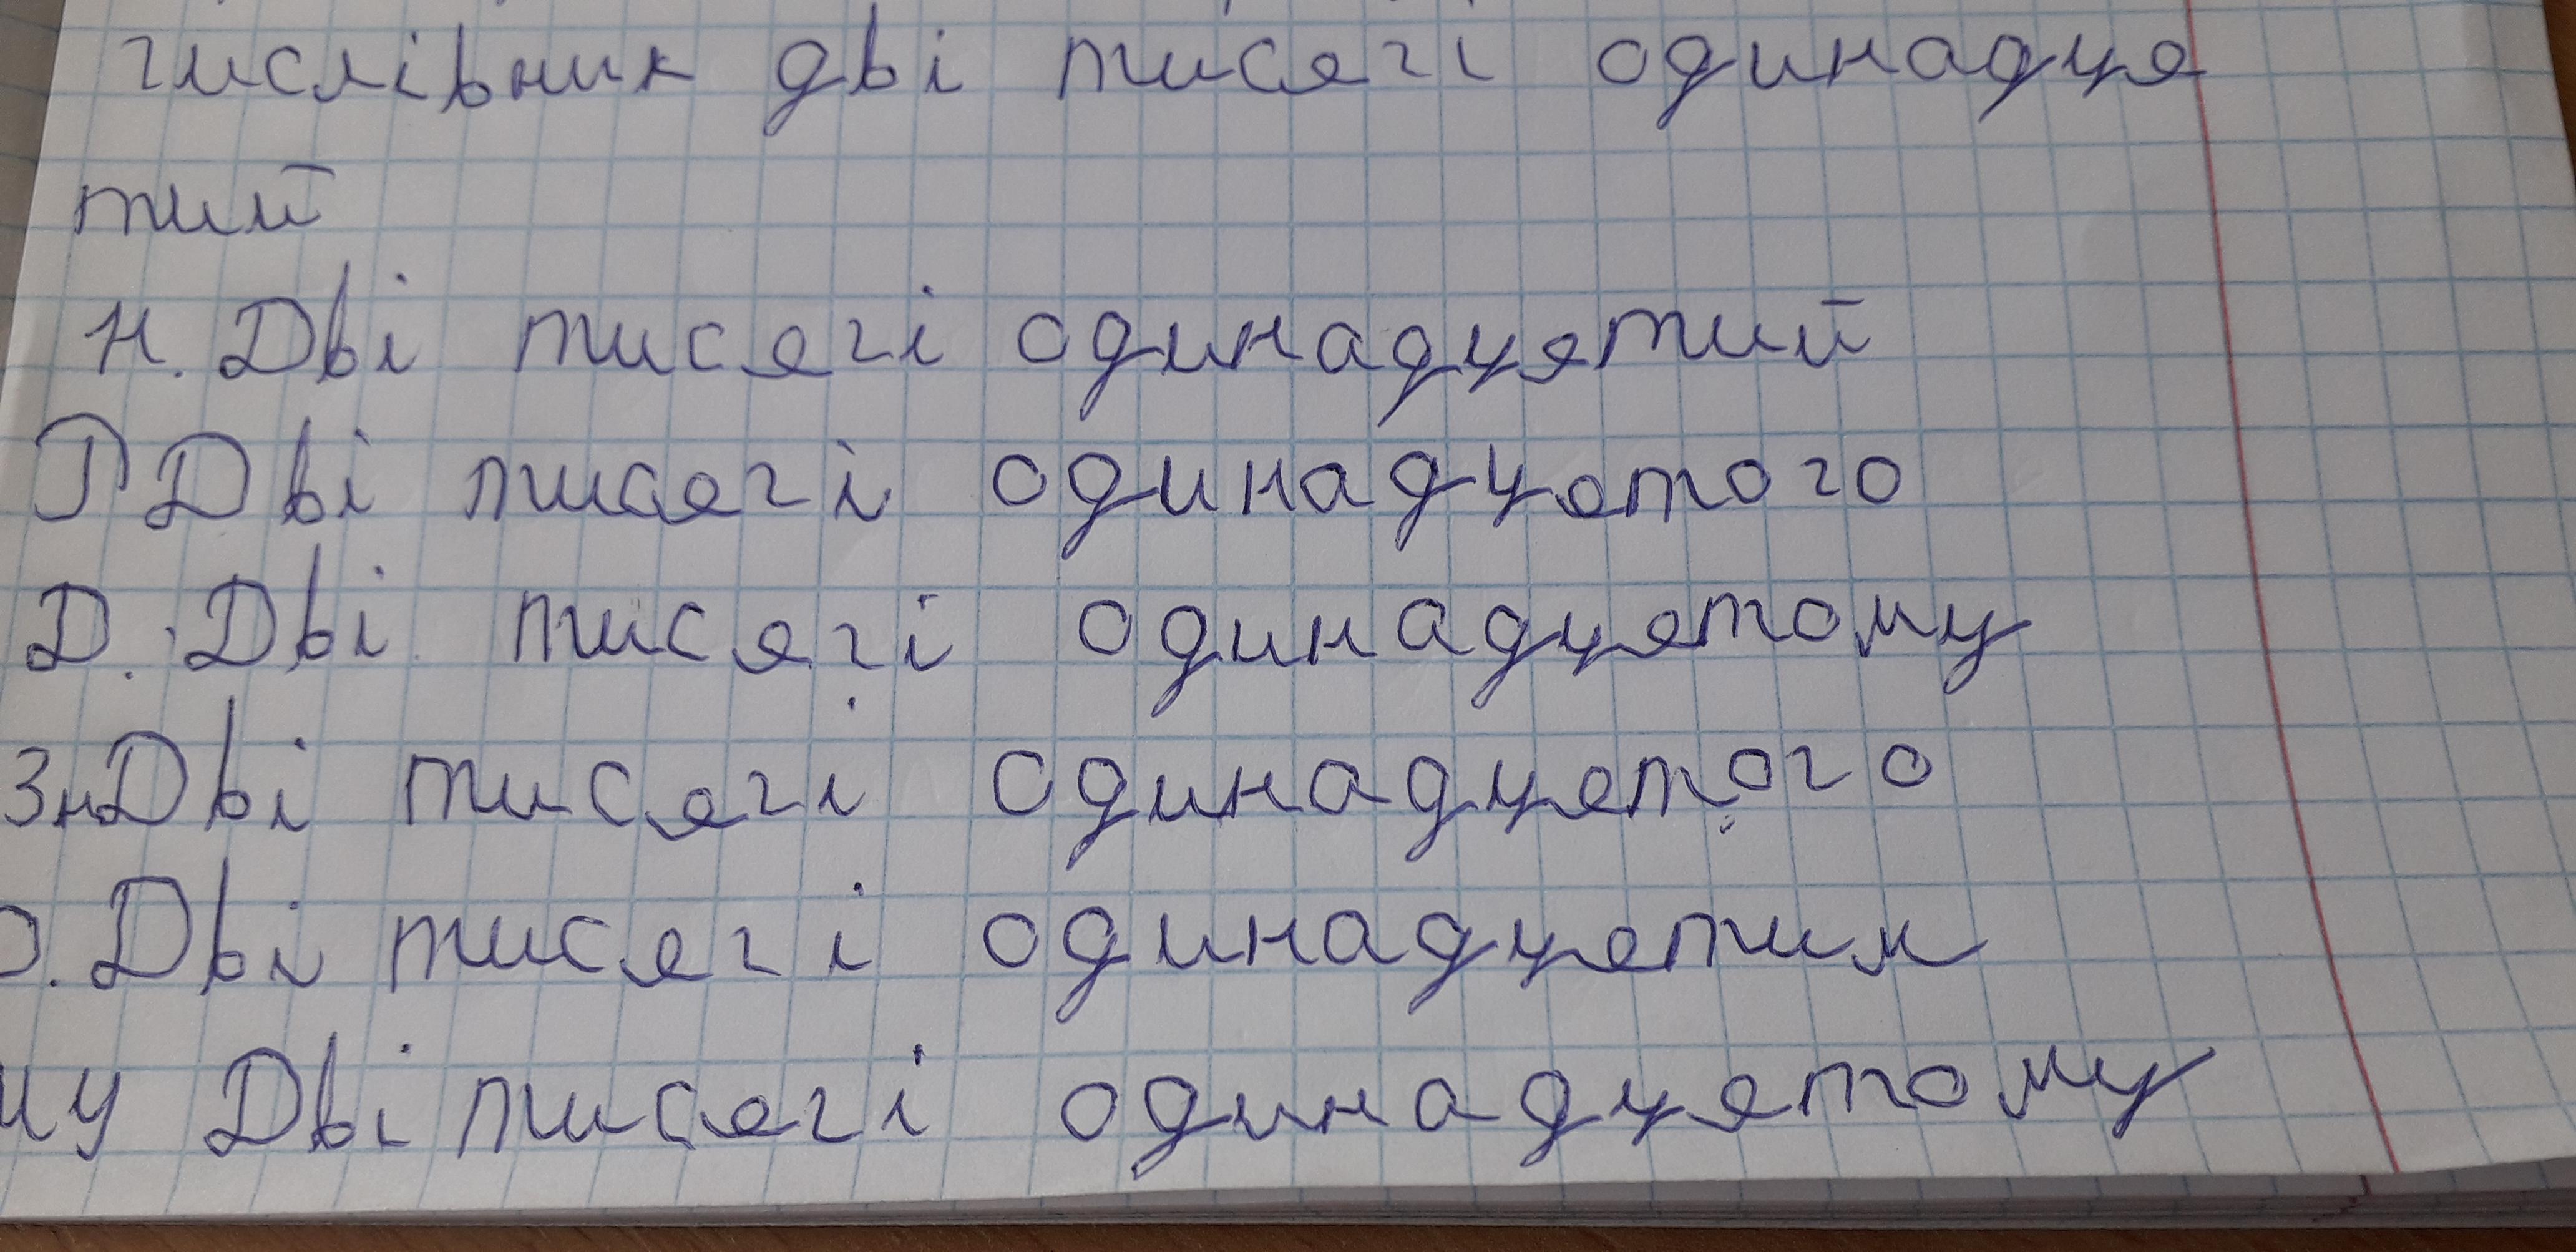 числівник дві тисячі одинадця
тий
Н. Дві тисячі одинадцятий
Р Дві тисячі одинадцятого
Д. Дві тисячі одинадцятому
Зн Дві тисячі одинадцятого
О. Дві тисячі одинадцятим
му Дві тисячі одинадцятому